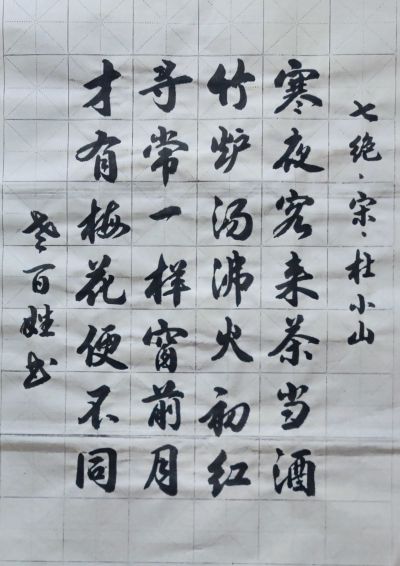 七绝·宋·杜小山
寒夜客来茶当酒
竹炉汤沸火初红
寻常一样窗前月
才有梅花便不同
老百姓书